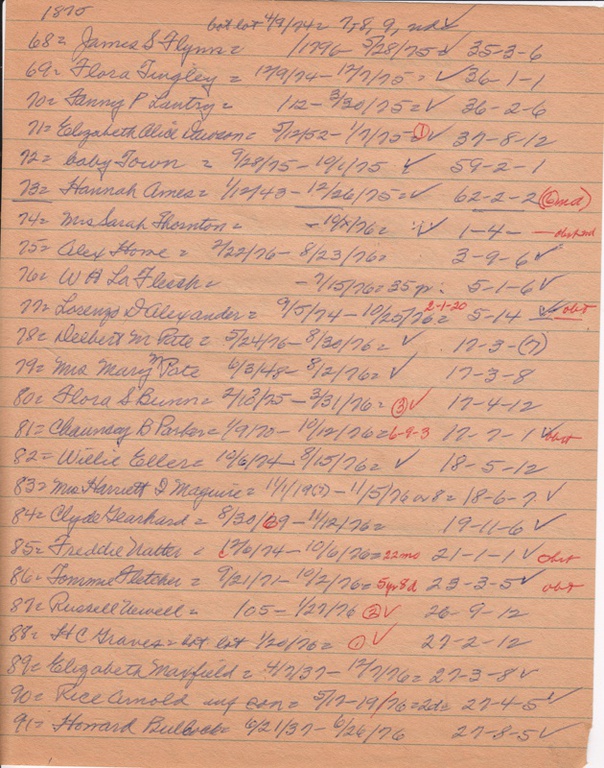 1875
bot lot 4/9/74 = 7, 8, 9, nd ✓
68 = James S Flynn = /1796 - 5/28/75 = ✓ 35-3-6
69 = Flora Tingley = 12/9/74 - 12/7/75 = ✓ 36-1-1
70 = Fanny P Lantry = 1/12 - 3/30/75 = ✓ 36-2-6
71 = Elizabeth Alice Dawson = 5/12/52 - 1/7/75 = ① ✓ 37-8-12
72 = baby Town = 9/28/75 - 10/1/75 ✓ 59-2-1
73 = Hannah Ames = 1/12/43 - 12/26/75 = ✓ 62-2-2 (6md)
74 = Mrs Sarah Thornton = /76 = ✓ 1-4-
75 = Alex Home = 2/22/76 - 8/23/76 = 3-9-6 ✓
76 = W H La Flesh = - 7/15/76 = 35 yr. 5-1-6 ✓
77 = Lorenzo D Alexander = 9/5/74 - 10/25/76 = 2-1-20 5-14 ✓ obt
78 = Delbert M Pate = 5/24/76 - 8/30/76 = ✓ 17-3-(7)
79 = Mrs Mary M Pate 6/3/48 - 8/12/76 = ✓ 17-3-8
80 = Flora S Bunn = 2/13/75 - 3/31/76 = ③ ✓ 17-4-12
81 = Chauncey B Parker = 1/9/70 - 10/12/76 = 6-9-3 17-7-1 ✓ obit
82 = Willie Eller = 10/6/74 - 8/15/76 = ✓ 18-5-12
83 = Mrs Harriett D Maguire = 11/1/19(?) - 11/5/76 or 8 = 18-6-7 ✓
84 = Clyde Gearhard = 8/30/69 - 11/12/76 = 19-11-6 ✓
85 = Freddie Natter = 12/6/74 - 10/6/76 = 22mo 21-1-1 ✓ obit
86 = Tommie Fletcher = 9/21/71 - 10/2/76 = 5yr 8d 23-3-5 ✓ obt
87 = Russell Newell = 105 - 1/27/76 ② ✓ 26-9-12
88 = H C Graves = bot lot 1/20/76 = ① ✓ 27-2-12
89 = Elizabeth Maxfield = 4/7/37 - 12/7/76 = 27-3-8 ✓
90 = Rice Arnold inf son = 5/17-19/76 = 2d = 27-4-5 ✓
91 = Howard Bullock = 6/21/37 - 6/26/76 27-8-5 ✓